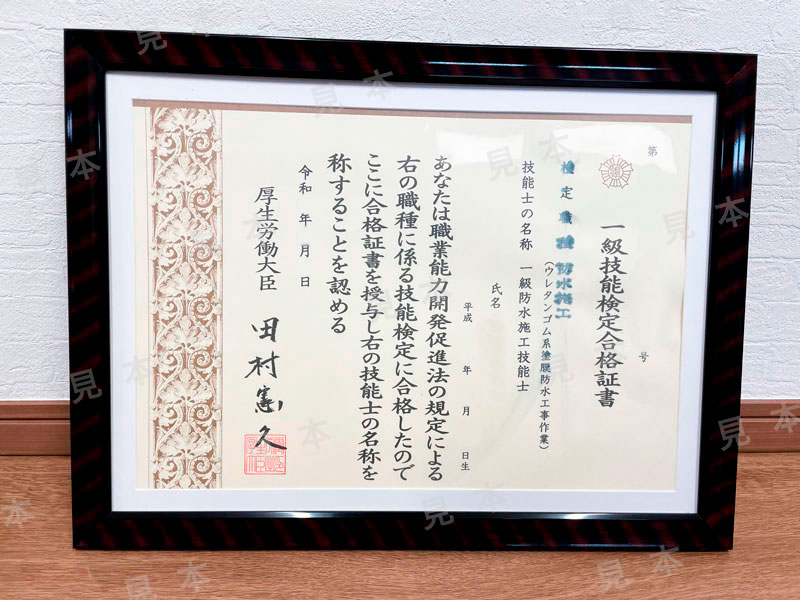 第 号
一級技能検定合格証書
検定職種 防水施工
(ウレタンゴム系塗膜防水工事作業)
技能士の名称 一級防水施工技能士
氏名
平成 年 月 日生
あなたは職業能力開発促進法の規定による
右の職種に係る技能検定に合格したので
ここに合格証書を授与し右の技能士の名称を
称することを認める
令和 年 月 日
厚生労働大臣 田村憲久
見本
見本
見本
見本
見本
見本
見本
見本
見本
見本
見本
見本